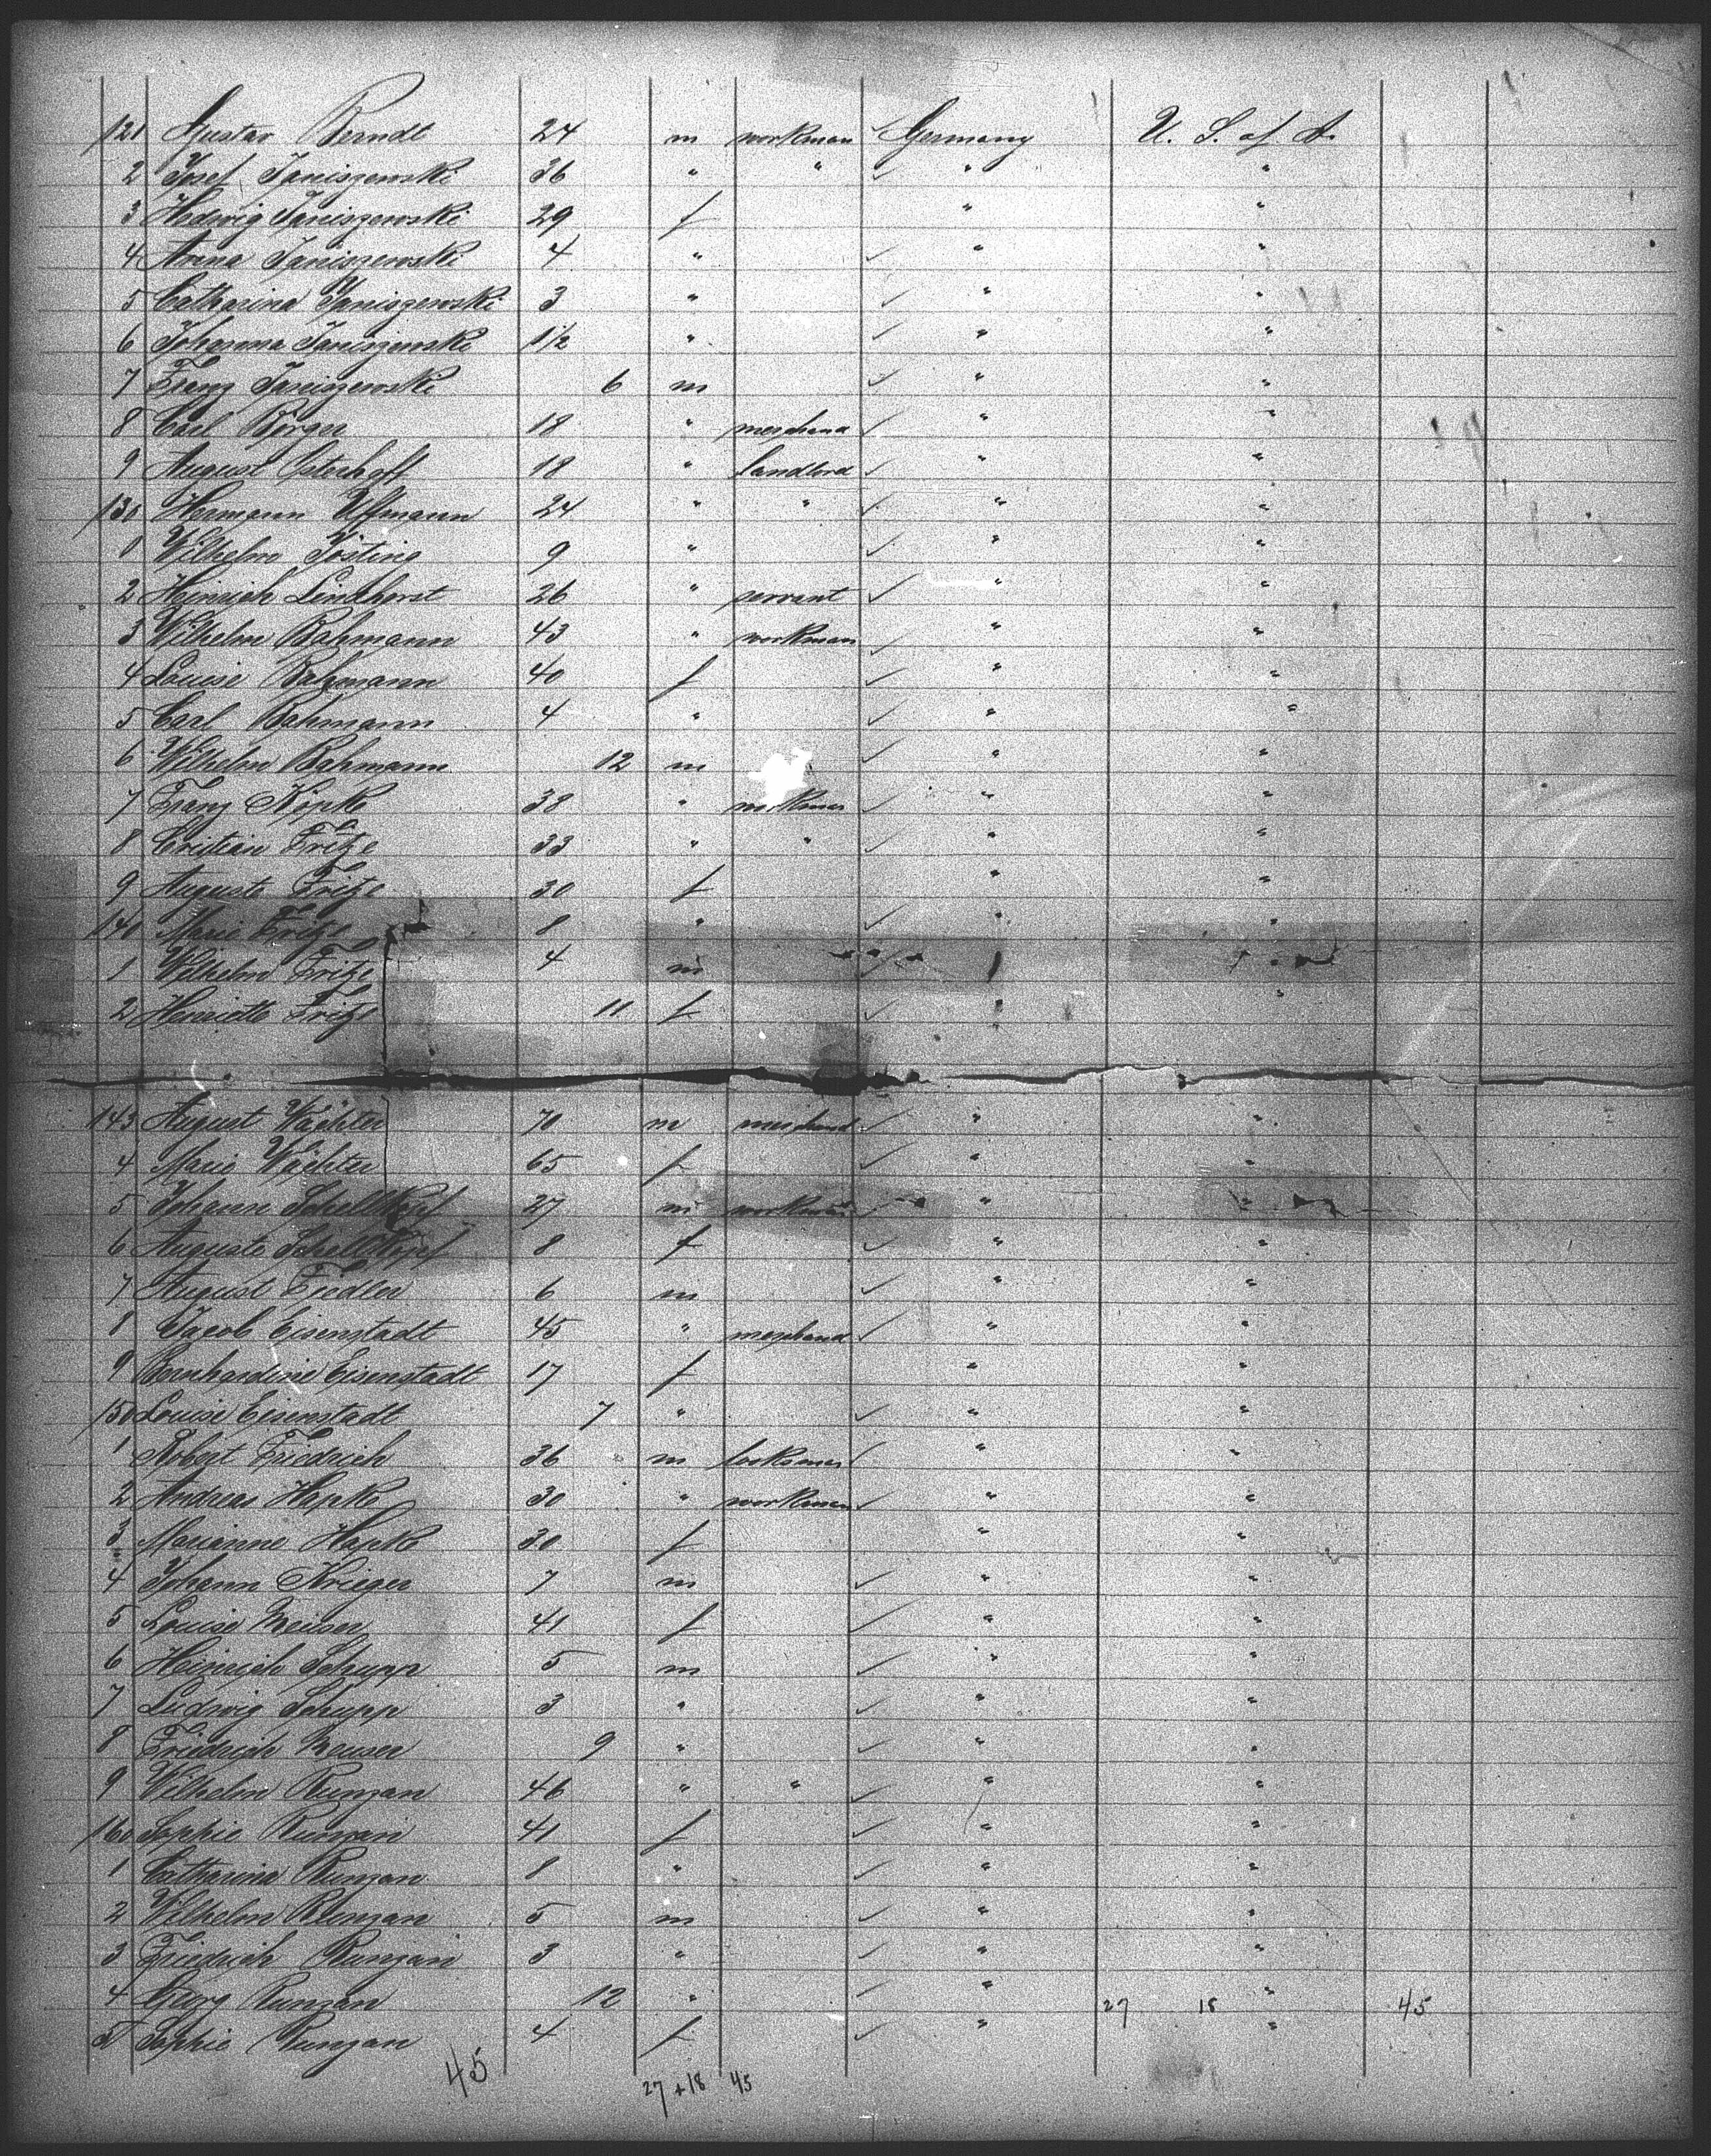 121 Gustav Berndt 24 m workman Germany U. S. of A.
2 Josef Janiszewski 36 " " " "
3 Hedwig Janiszewski 29 f " "
4 Anna Janiszewski 4 " " "
5 Catharina Janiszewski 3 " " "
6 Johanna Janiszewski 1 1/2 " " "
7 Franz Janiszewski 6 m " "
8 Carl 18 " merchand " "
9 August Osterhoff 18 " landlord " "
130 Hermann Uffmann 24 " " " "
1 Wilhelm Josting 9 " " "
2 Heinrich Lindhorst 26 " servant " "
3 Wilhelm Bahmann 43 " workman " "
4 Louise Bahmann 40 f " "
5 Carl Bahmann 4 " " "
6 Wilhelm Bahmann 12 m " "
7 Franz Köpke 38 " workman " "
8 Cristian Fritze 33 " " " "
9 Auguste Fritze 30 f " "
140 Marie Fritze 8 " " "
1 Wilhelm Fritze 4 m "
2 Henriette Fritze 11 f " "
143 August Wächter 70 m merchand " "
4 Marie Wächter 65 f " "
5 Johann Schellkopf 27 m workman " "
6 Auguste Schellkopf 8 f " "
7 August Fiedler 6 m " "
8 Jacob Eisenstadt 45 " merchand " "
9 Bernhardine Eisenstadt 17 f " "
150 Louise Eisenstadt 7 " " "
1 Robert Friedrich 36 m " "
2 Andreas Hapke 30 " workman " "
3 Marianne Hapke 30 f " "
4 Johann Krieger 7 m " "
5 Louise 41 f " "
6 Heinrich Schupp 5 m " "
7 Ludwig Schupp 3 " " "
8 Friedrich 9 " " "
9 Wilhelm Runzan 46 " " " "
160 Sophie Runzan 41 f " "
1 Catharina Runzan 8 " " "
2 Wilhelm Runzan 5 m " "
3 Friedrich Runzan 3 " " "
4 Georg Runzan 12 " " 27 18 " 45
5 Sophie Runzan 4 f " "
45 27 + 18 45